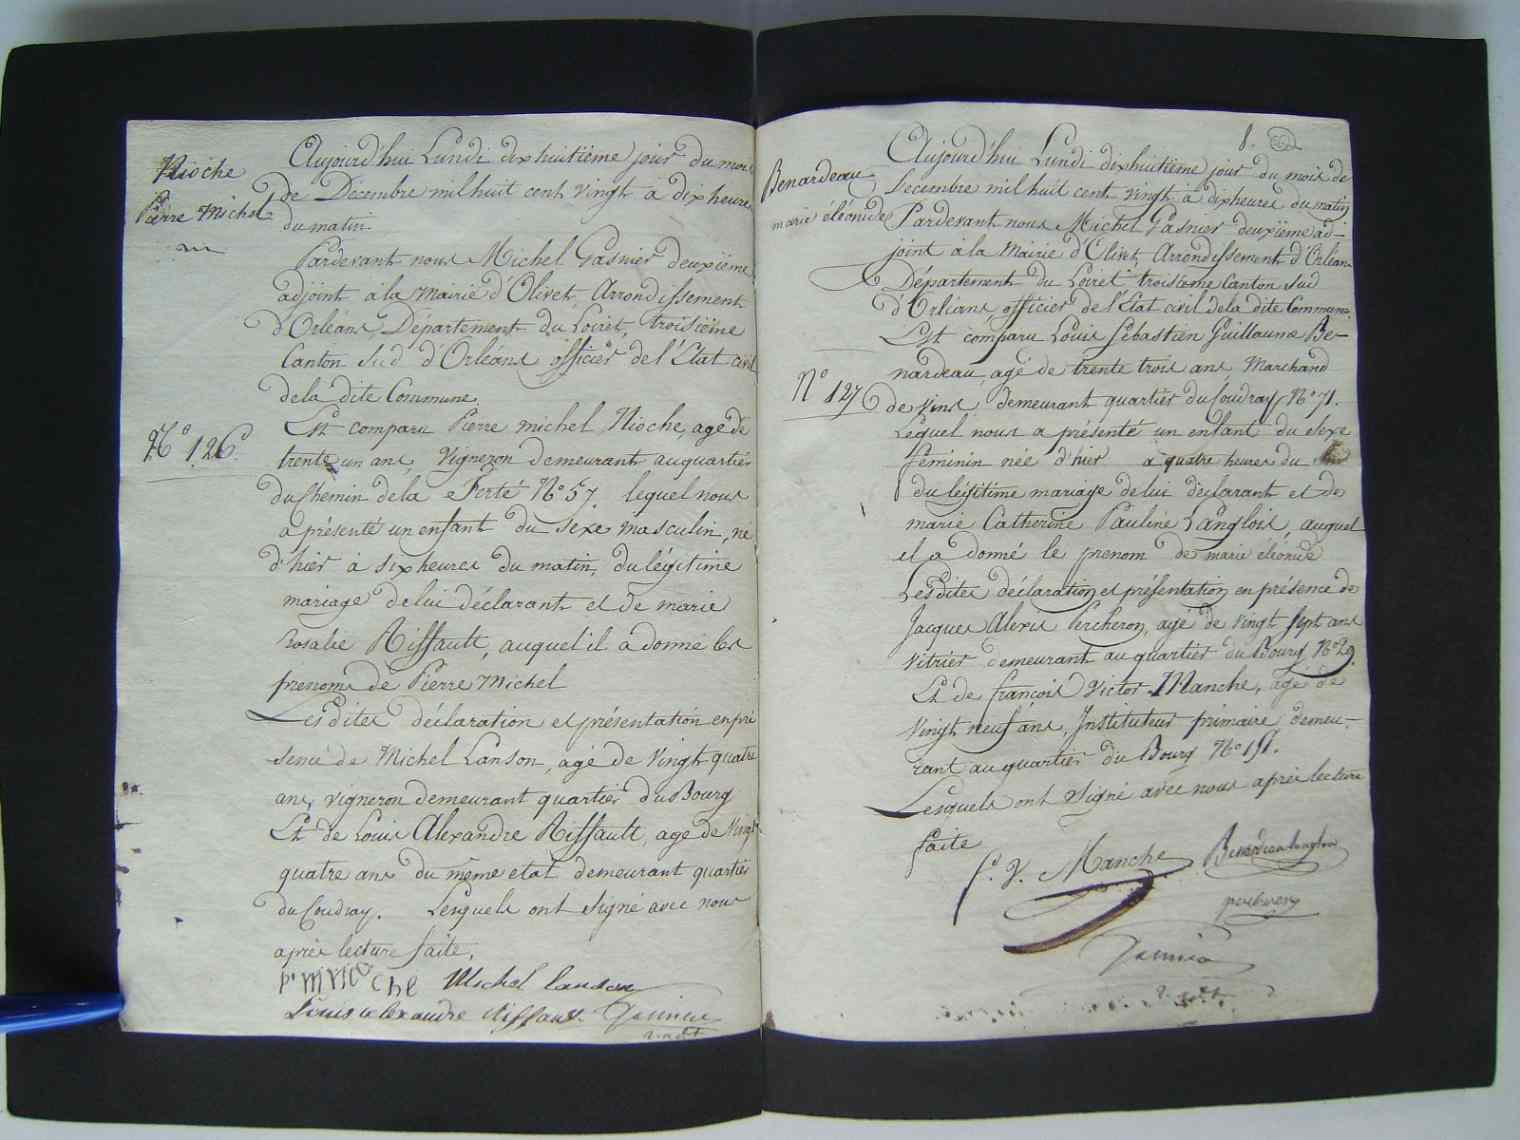 Nioche
Pierre Michel
N° 126
Aujourd'hui Lundi dixhuitieme jour du mois
de Décembre mil huit cent vingt à dix heures
du matin
Pardevant nous Michel Gasnier deuxième
adjoint à la Mairie d'Olivet, Arrondissement
d'Orléans, Département du Loiret, troisième
Canton Sud d'Orléans officier de l'Etat civil
de la dite Commune
Est comparu Pierre michel Nioche, age de
trente un ans, Vigneron demeurant au quartier
du Chemin de la Ferté N° 57 lequel nous
a présenté un enfant du Sexe masculin, né
d'hier à six heures du matin, du légitime
mariage de lui déclarant et de marie
rosalie Riffault, auquel il a donné les
prenoms de Pierre Michel
Les dites déclaration et présentation en pré
sence de Michel Lanson, agé de Vingt quatre
ans, vigneron demeurant quartier du Bourg
Et de Louis Alexandre Riffault, age de Vingt
quatre ans du même etat demeurant quartier
du Coudray. Lesquels ont signé avec nous
après lecture faite.
Michel lanson
Louis alexandre riffault
8.
Benardeau
marie éléonide
N° 127
Aujourd'hui Lundi dixhuitième jour du mois de
Decembre mil huit cent vingt à dix heures du matin
Pardevant nous Michel Gasnier deuxième ad-
joint à la Mairie d'Olivet, Arrondissement d'Orléans
Département du Loiret troisième Canton Sud
d'Orléans officier de l'Etat civil de la dite Commune.
Est comparu Louis Sébastien Guillaume Be-
nardeau, agé de trente trois ans Marchand
de Vins demeurant quartier du Coudray N° 71.
Lequel nous a présenté un enfant du Sexe
feminin née d'hier a quatre heures du
du légitime mariage de lui déclarant et de
marie Catherine Pauline Langlois, auquel
il a donné le prenom de marie éléonide
Les dites déclaration et présentation en présence de
Jacques Alexis Percheron, agé de vingt sept ans
Vitrier demeurant au quartier du Bourg N° 29.
Et de françois Victor Manche, agé de
Vingt neuf ans, Instituteur primaire demeu-
rant au quartier du Bourg N°
Lesquels ont signé avec nous après lecture
faite
f. V. Manche